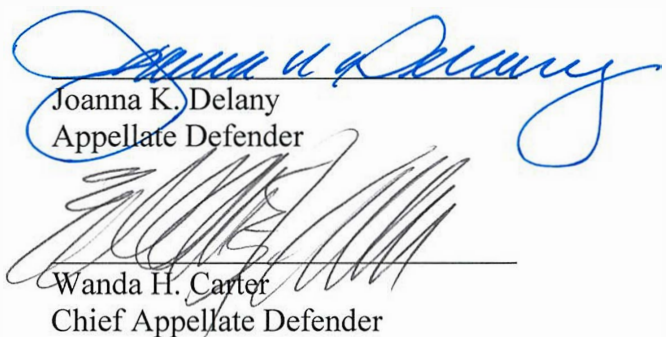 Joanna K. Delany
Joanna K. Delany
Appellate Defender
Wanda H. Carter
Chief Appellate Defender